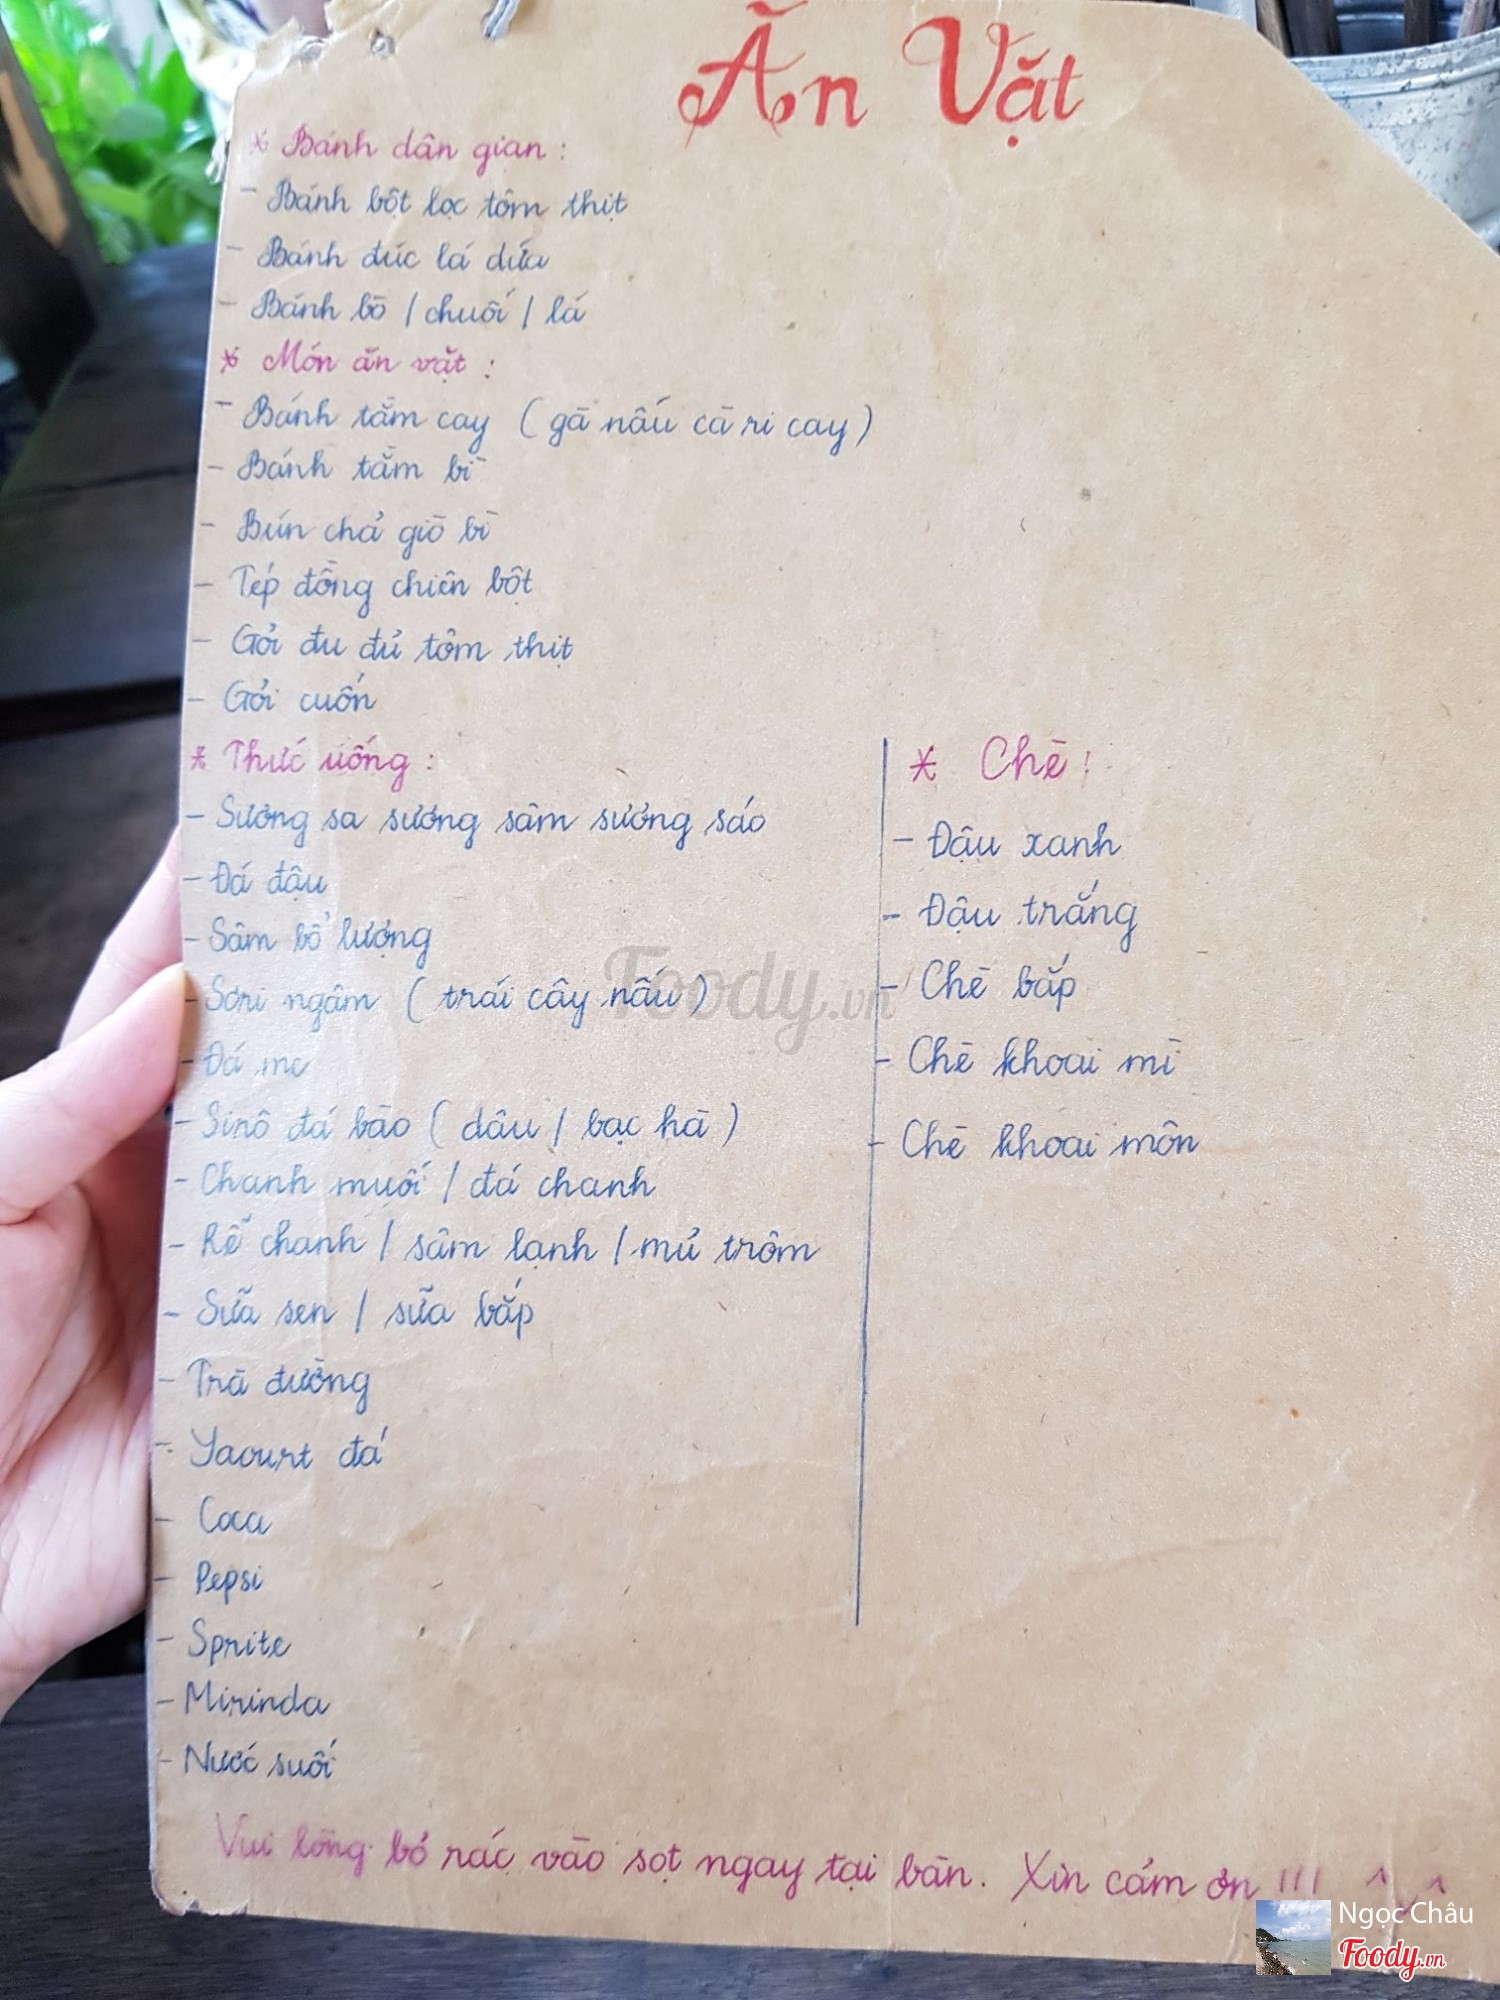 Ăn Vặt
* Bánh dân gian:
- Bánh bột lọc tôm thịt
- Bánh đúc lá dứa
- Bánh bò / chuối / lá
* Món ăn vặt:
- Bánh tằm cay (gà nấu cà ri cay)
- Bánh tằm bì
- Bún chả giò bì
- Tép đồng chiên bột
- Gỏi đu đủ tôm thịt
- Gỏi cuốn
* Thức uống:
- Sương sa sương sâm sương sáo
- Đá đậu
- Sâm bổ lượng
- Sơri ngâm (trái cây nấu)
- Đá me
- Sinô đá bào (dâu / bạc hà)
- Chanh muối / đá chanh
- Rễ chanh / sâm lạnh / mủ trôm
- Sữa sen / sữa bắp
- Trà đường
- Yaourt đá
- Coca
- Pepsi
- Sprite
- Mirinda
- Nước suối
* Chè:
- Đậu xanh
- Đậu trắng
- Chè bắp
- Chè khoai mì
- Chè khoai môn
Vui lòng bỏ rác vào sọt ngay tại bàn. Xin cảm ơn !!! ^.^
Foody.vn
Ngọc Châu
Foody.vn